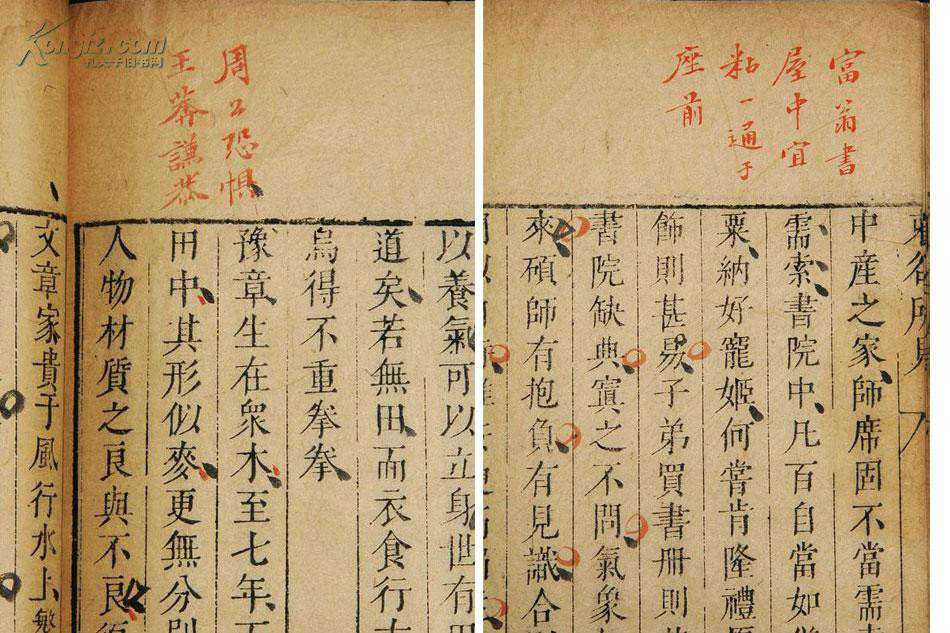 Kongfz.com
孔夫子旧书网
富翁書
屋中宜
粘一通于
座前
中產之家師席固不當需
需索書院中凡百自當如
粟納好寵姬何嘗肯隆禮
飾則甚易子弟買書冊則
書院缺典寘之不問氣象
來碩師有抱負有見識合
周公恐惧
王莽謙恭
以養氣可以立身世有
道矣若無田而衣食行
烏得不重拳拳
豫章生在衆木至七年
田中其形似麥更無分別
人物材質之良與不良
文章家貴于風行水上